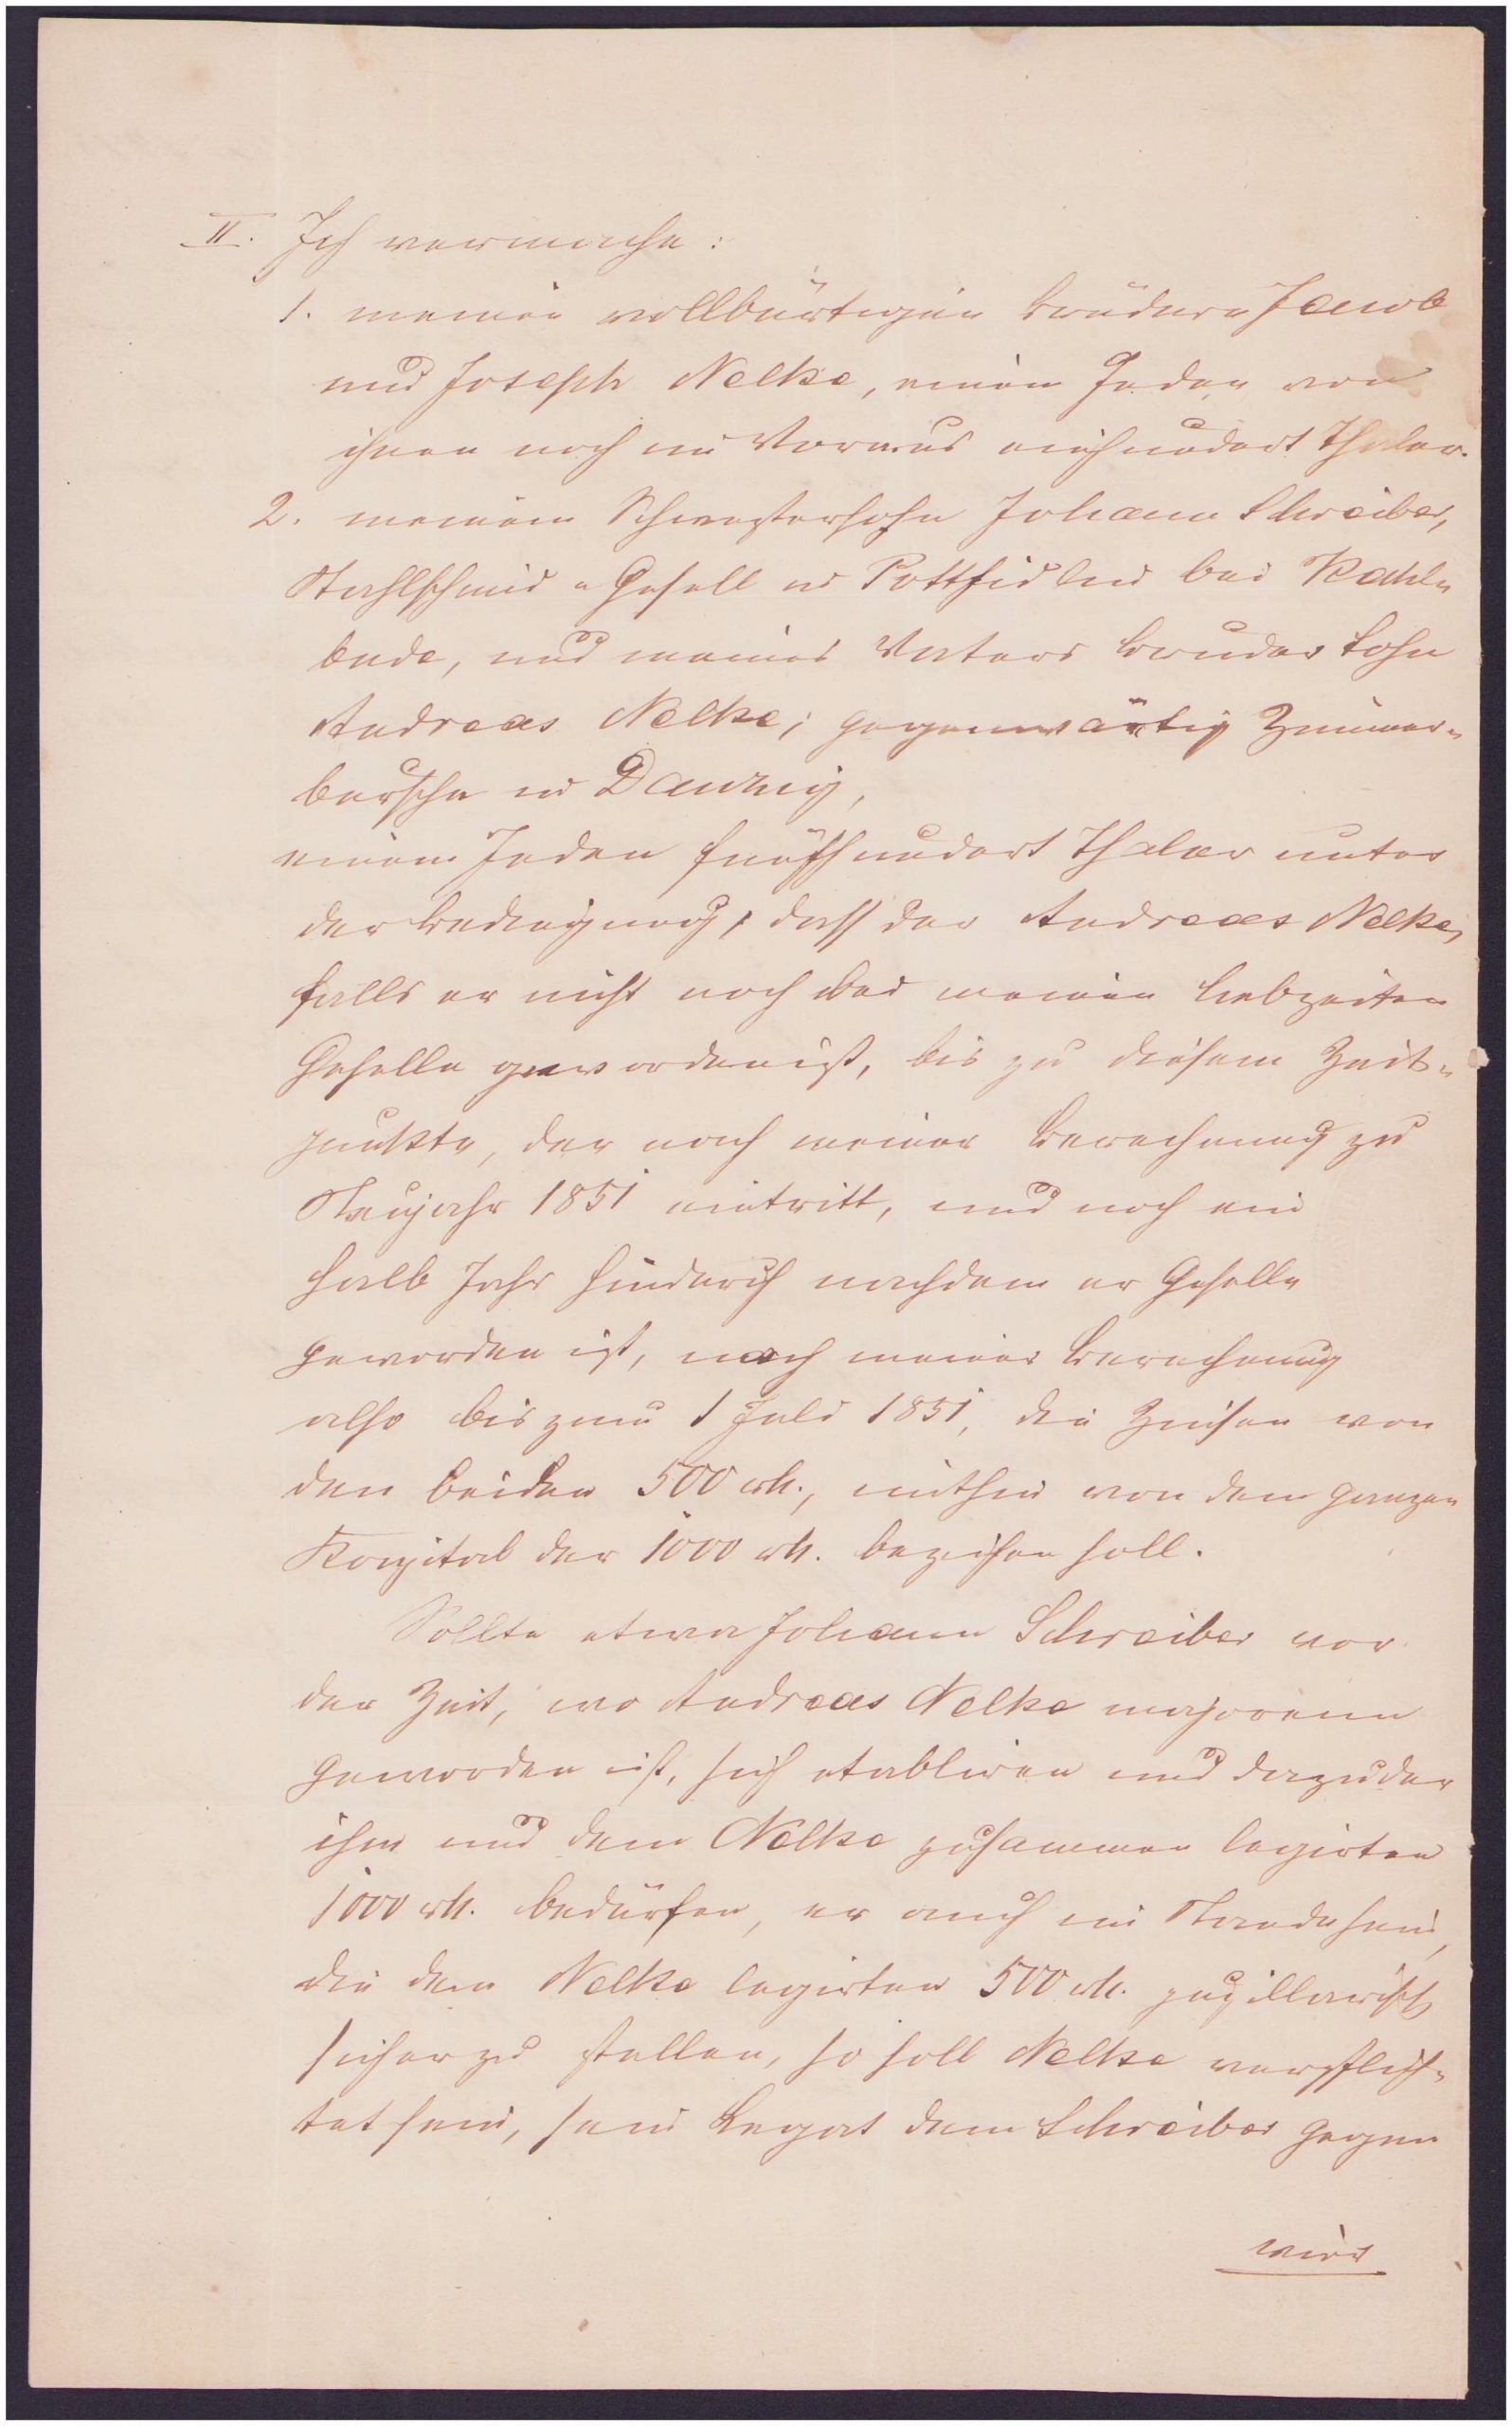 II. Ich vermache:
1. meinen vollbürtigen Brüdern Jacob
und Joseph Nelke, einem Jeden von
ihnen noch im Voraus einhundert Thaler.
2. meinem Schwestersohn Johann Schreiber,
Stahlschmid-Gesell in Pottfidlin bei Kahl-
bude, und meines Vaters Bruder Sohn
Andreas Nelke, gegenwärtig Zimmer-
bursche in Danzig,
einem Jeden fünfhundert Thaler unter
der Bedingung, dass der Andreas Nelke,
falls er nicht noch bei meinen Lebzeiten
Geselle geworden ist, bis zu diesem Zeit-
punkte, der nach meiner Berechnung zu
Neujahr 1851 eintritt, und noch ein
halb Jahr hindurch nachdem er Geselle
geworden ist, nach meiner Berechnung
also bis zum 1 Juli 1851, die Zinsen von
den beiden 500 rth., mithin von dem ganzen
Kapital der 1000 rth. beziehen soll.
Sollte etwa Johann Schreiber vor
der Zeit, wo Andreas Nelke majorenn
geworden ist, sich etabliren und dazu der
ihm und dem Nelke zusammen legirten
1000 rth. bedürfen, er auch im Stande sein,
die dem Nelke legirten 500 rth. pupillarisch
sicher zu stellen, so soll Nelke verpflich-
tet sein, sein Legat dem Schreiber gegen